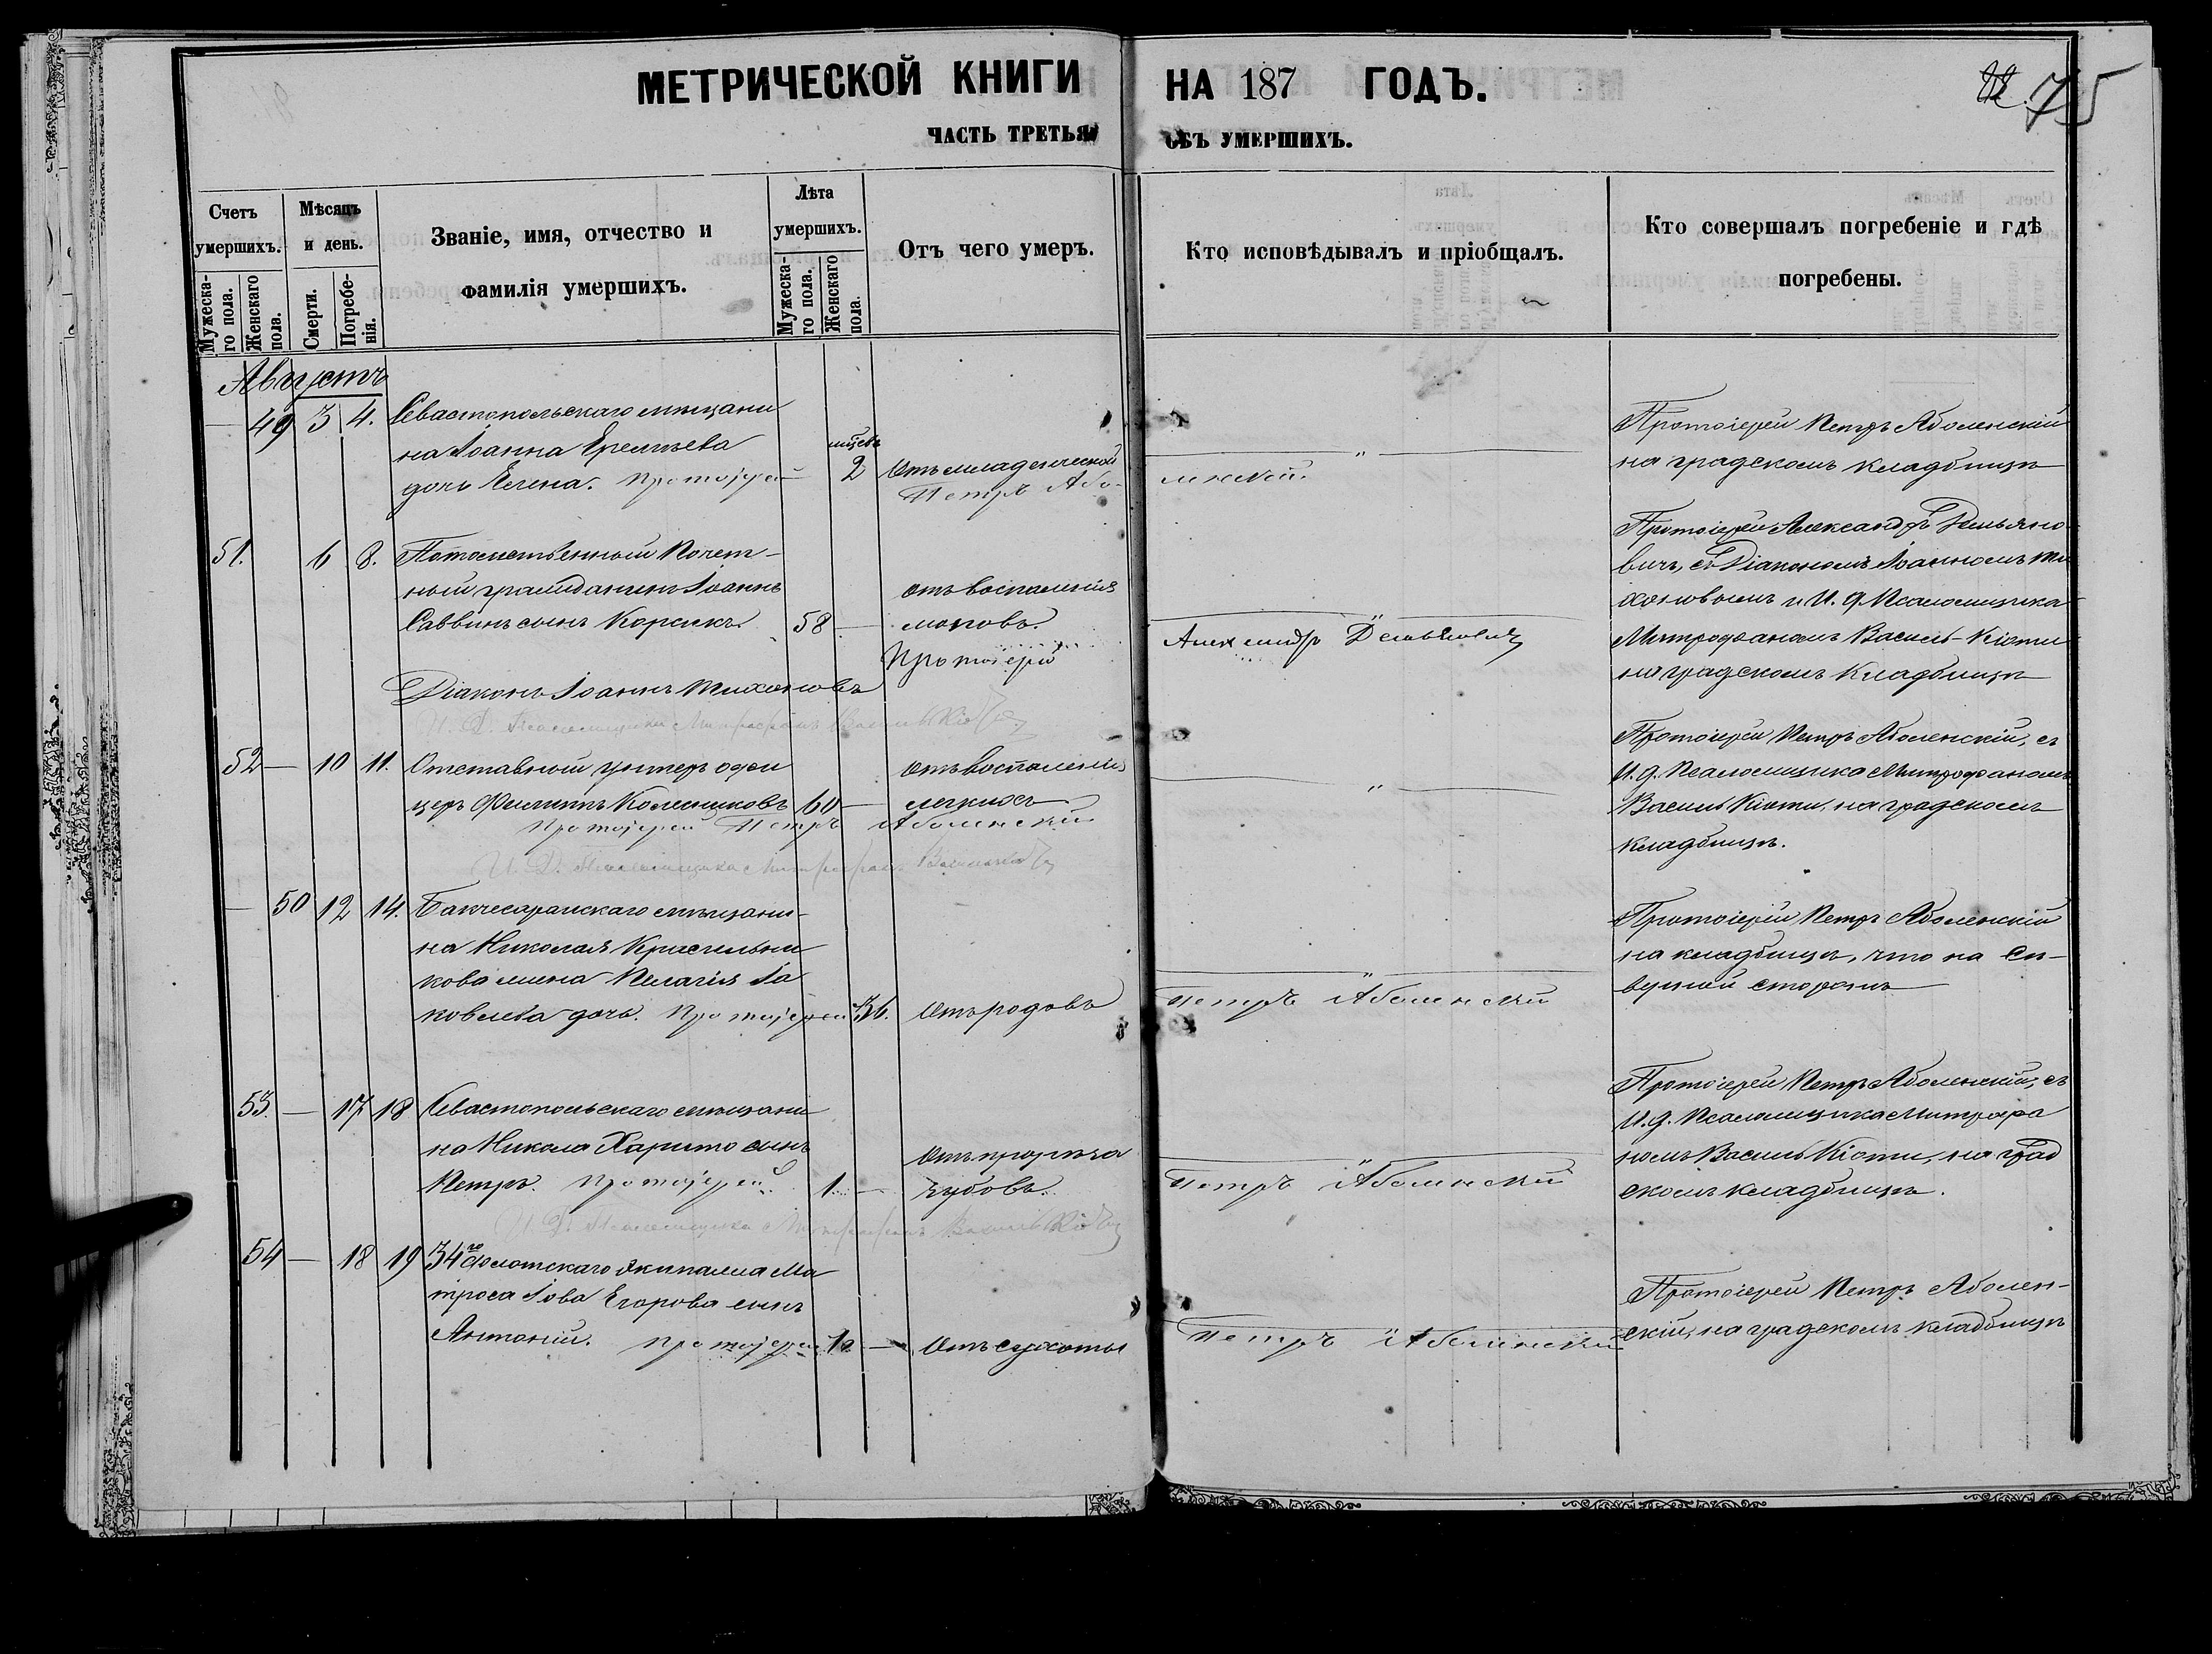 МЕТРИЧЕСКОЙ КНИГИ НА 187 ГОДЪ.
75
ЧАСТЬ ТРЕТЬЯ ОБЪ УМЕРШИХЪ.
Счетъ умершихъ.
Мужеска-го пола.
Женскаго пола.
Мѣсяцъ и день.
Смерти.
Погребе-нія.
Званіе, имя, отчество и фамилія умершихъ.
Лѣта умершихъ.
Мужеска-го пола.
Женскаго пола.
Отъ чего умеръ.
Кто исповѣдывалъ и пріобщалъ.
Кто совершалъ погребеніе и гдѣ погребены.
Августъ
— 49 3 4. Севастопольскаго мѣщани
на Іоанна
дочь Елена. Протоіерей
2 Отъ младенческой
Петръ Або-
ленскій.
Протоіерей Петръ Аболенскій
на градскомъ кладбищѣ
51. 6 8. Потомственный Почет-
ный гражданинъ Іоаннъ
Саввинъ сынъ
58 —
отъ воспаленія
Протоіерей
Александръ Демьяновичъ
Діаконъ Іоаннъ Тихоновъ
И. Д. Псаломщика Митрофанъ
Протоіерей Александръ Демьяно
вичъ, съ Діакономъ Іоанномъ Ти
хоновымъ и И. д. Псаломщика
Митрофаномъ Василь-Кіоти
на градскомъ Кладбищѣ
52 — 10 11. Отставный унтеръ офи
церъ Филиппъ Колесниковъ 60 —
отъ воспаленія
легкихъ
Протоіерей Петръ Аболенскій
И. Д. Псаломщика Митрофанъ
Протоіерей Петръ Аболенскій, съ
И. д. Псаломщика Митрофаномъ
Василь Кіоти, на градскомъ
кладбищѣ.
— 50 12 14. Бакчесарайскаго мѣщани-
на Николая Красильни
кова жена Пелагія Іа
ковлева дочь. Протоіерей 36. Отъ родовъ
Петръ Аболенскій
Протоіерей Петръ Аболенскій
на кладбищѣ, что на Сѣ-
верной сторонѣ
53. — 17 18 Севастопольскаго мѣщани
на Никола Харито сынъ
Петръ. Протоіерей 1. —
Отъ прорѣза
зубовъ.
Петръ Аболенскій
И. Д. Псаломщика Митрофанъ
Протоіерей Петръ Аболенскій, съ
И. д. Псаломщика Митрофа
номъ Василь Кіоти, на град
скомъ кладбищѣ.
54 — 18 19 34го флотскаго экипажа Ма
троса Іова Егорова сынъ
Антоній. Протоіерей — Отъ сухоты
Петръ Аболенскій
Протоіерей Петръ Аболен-
скій, на градскомъ кладбищѣ